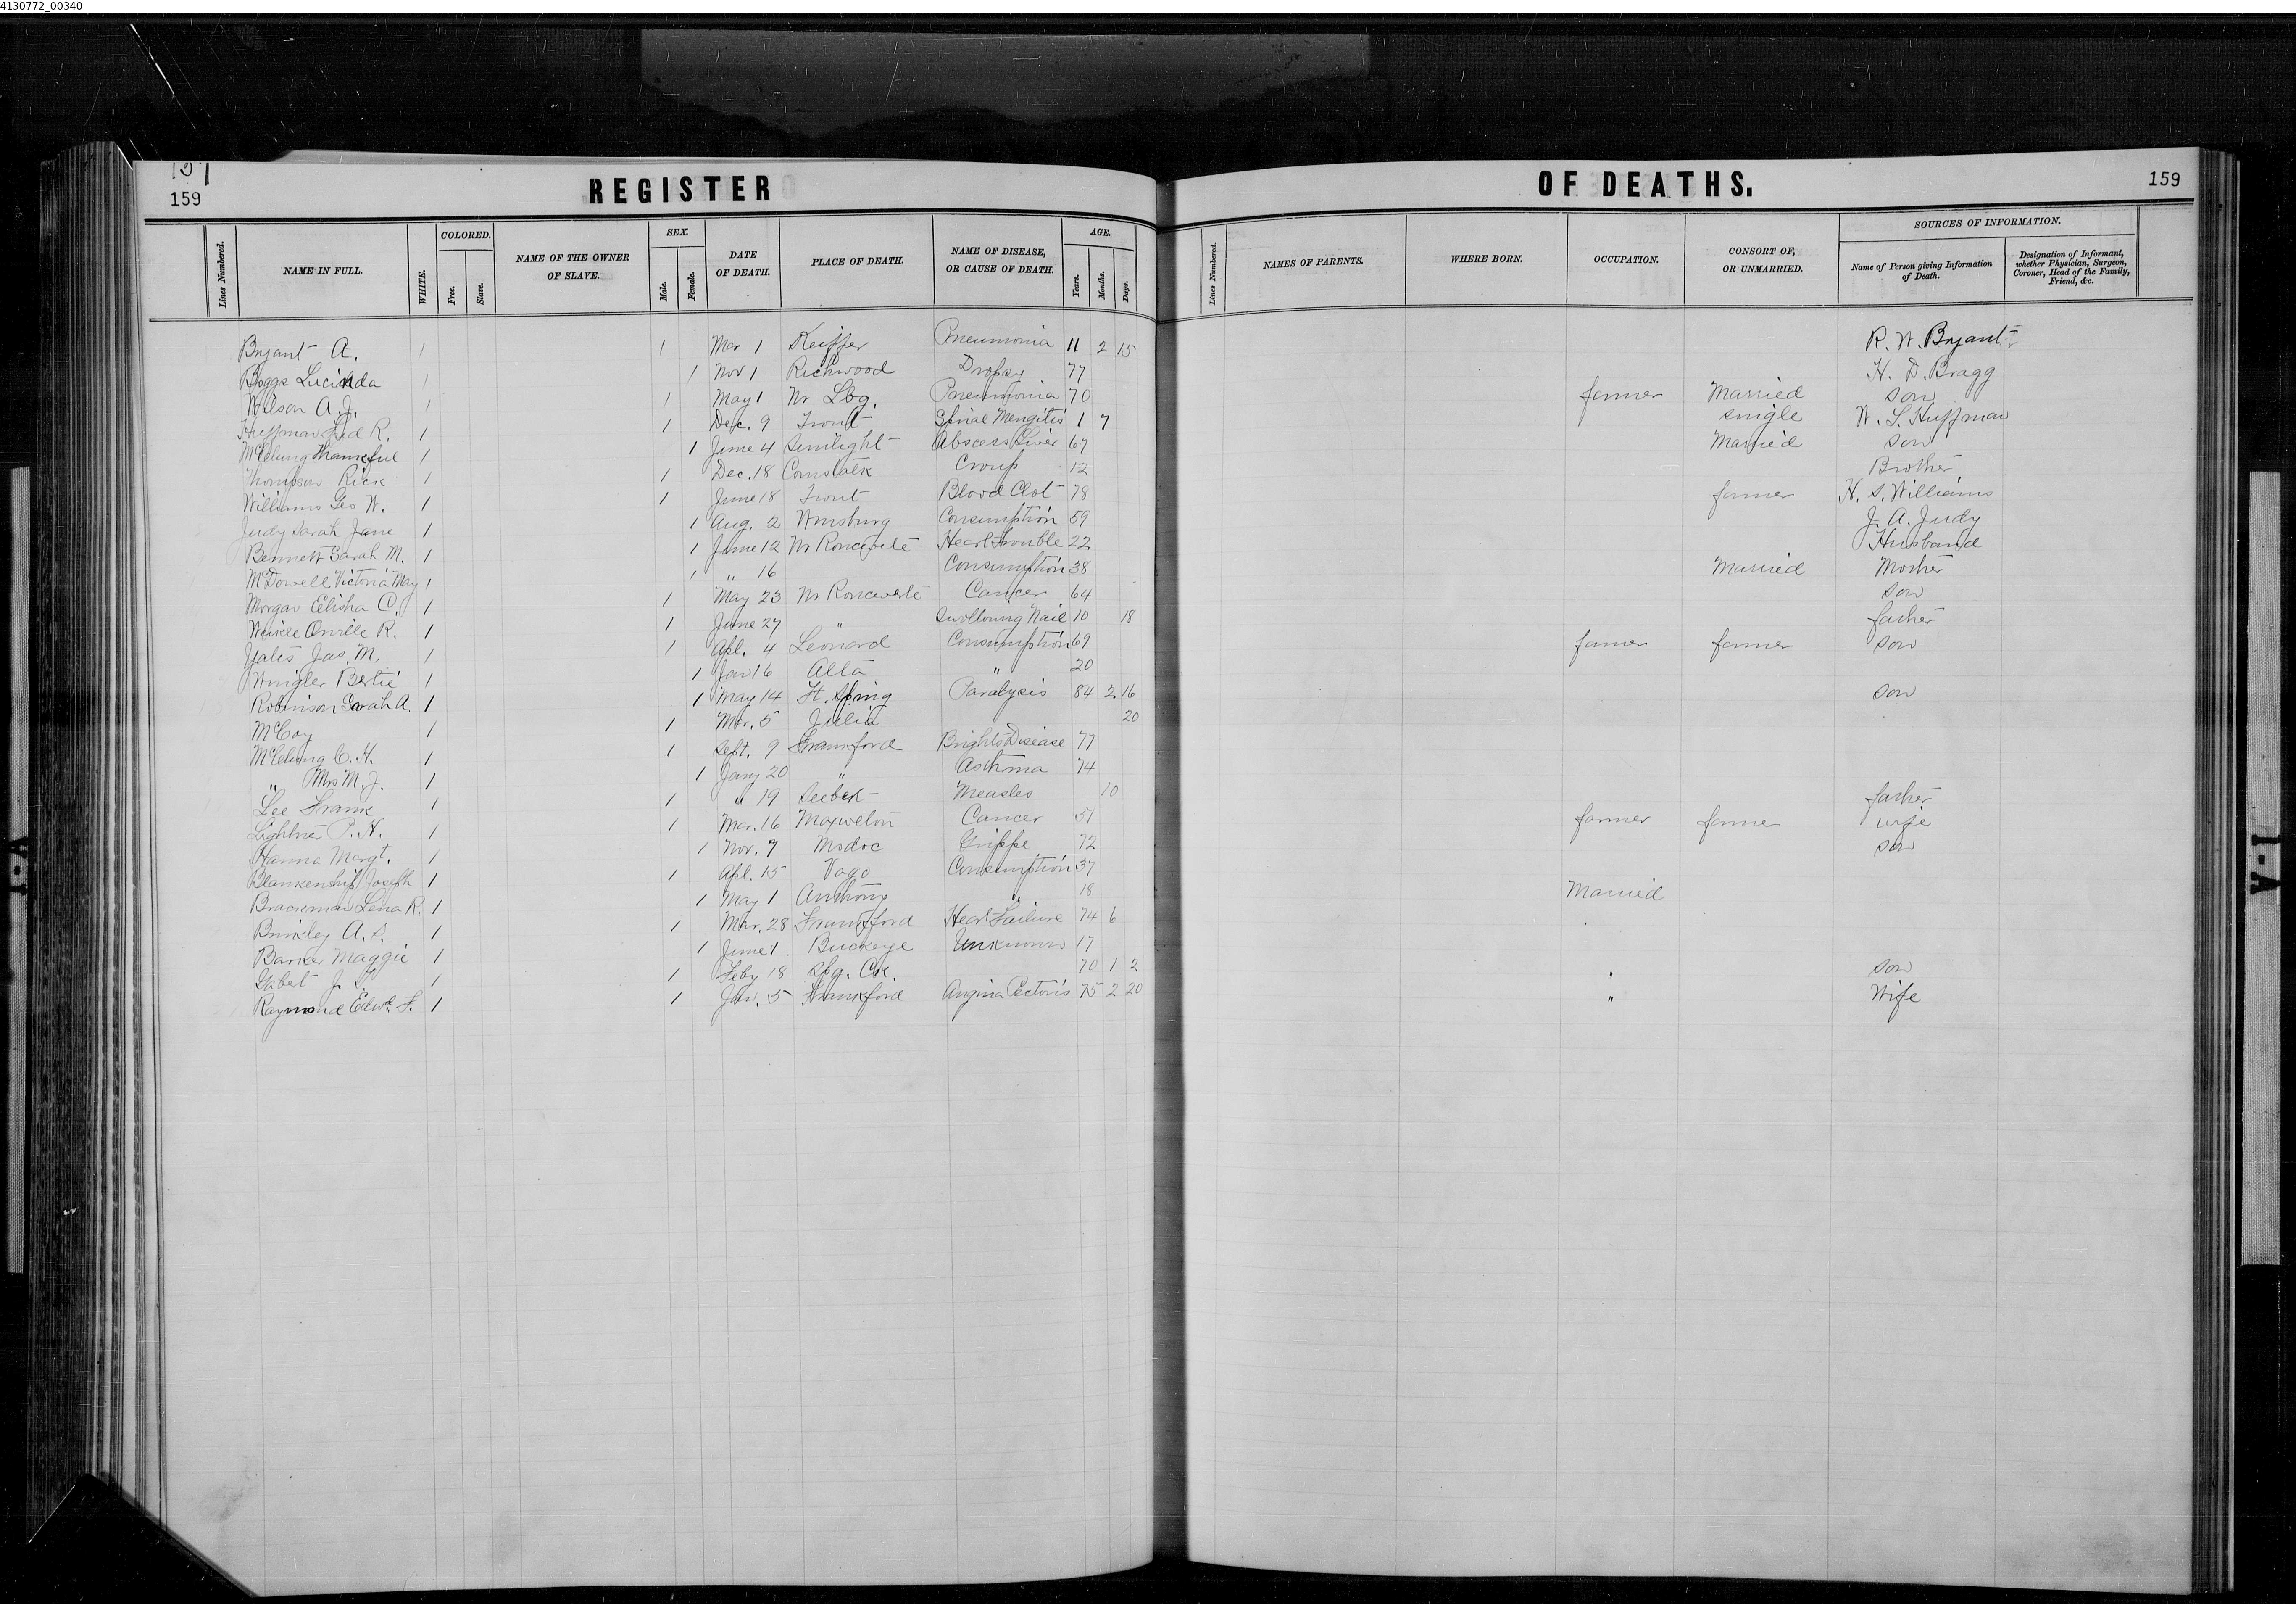 4130772_00340
157
159
REGISTER
OF DEATHS.
159
Lines Numbered.
NAME IN FULL.
WHITE.
COLORED.
Free.
Slave.
NAME OF THE OWNER
OF SLAVE.
SEX.
Male.
Female.
DATE
OF DEATH.
PLACE OF DEATH.
NAME OF DISEASE,
OR CAUSE OF DEATH.
AGE.
Years.
Months.
Days.
Lines Numbered.
NAMES OF PARENTS.
WHERE BORN.
OCCUPATION.
CONSORT OF,
OR UNMARRIED.
SOURCES OF INFORMATION.
Name of Person giving Information
of Death.
Designation of Informant,
whether Physician, Surgeon,
Coroner, Head of the Family,
Friend, &c.
Bryant A. 1 1 Mar 1 Keiffer Pneumonia 11 2 15 R. W. Bryant
Boggs Lucinda 1 1 Nov 1 Richwood Dropsy 77 H. D. Bragg
Wilson A. J. 1 1 May 1 Nr Lbg. Pneumonia 70 farmer Married son
Huffman Fred R. 1 1 Dec. 9 Trout Spinal Mengitis 1 7 single W. L. Huffman
McClung Thankful 1 1 June 4 Sunlight Abscess Liver 67 Married son
Thompson Rick 1 1 Dec. 18 Cornstalk Croup 12 Brother
Williams Geo W. 1 1 June 18 Trout Blood Clot 78 farmer H. S. Williams
Judy Sarah Jane 1 1 Aug. 2 Wmsburg Consumption 59 J. A. Judy
Bennett Sarah M. 1 1 June 12 Nr Ronceverte Heart trouble 22 Husband
McDowell Victoria May 1 1 " 16 Consumption 38 Married Mother
Morgan Elisha C. 1 1 May 23 Nr Ronceverte Cancer 64 son
Orville R. 1 1 June 27 " Swollowing Nail 10 18 father
Yates Jas. M. 1 1 Apl. 4 Leonard Consumption 69 farmer farmer son
Bertie 1 1 Jan 16 Alta " 20
Robinson Sarah A. 1 1 May 14 Ft. Spring Paralysis 84 2 16 son
McCoy 1 1 Mar. 5 Julia 20
McClung C. H. 1 1 Sept. 9 Frankford Brights Disease 77
" Mrs M. J. 1 1 Jany 20 " Asthma 74
Lee Frank 1 1 " 19 Seebert Measles 10 father
Lightner P. H. 1 1 Mar. 16 Maxwelton Cancer 51 farmer farmer wife
Hanna Margt. 1 1 Nov. 7 Modoc Grippe 72 son
Blankenship Joseph 1 1 Apl. 15 Vago Consumption 37
Brackman Lena R. 1 1 May 1 Anthony " 18 Married
Brinkley A. S. 1 1 Mar. 28 Frankford Heart Failure 74 6
Barker Maggie 1 1 June 1 Buckeye Unknown 17
Gabert J. 1 1 Feby 18 Spg. Ck. 70 1 2 " son
Raymond Edwd. F. 1 1 Jan. 5 Frankford Angina Pectoris 75 2 20 " Wife